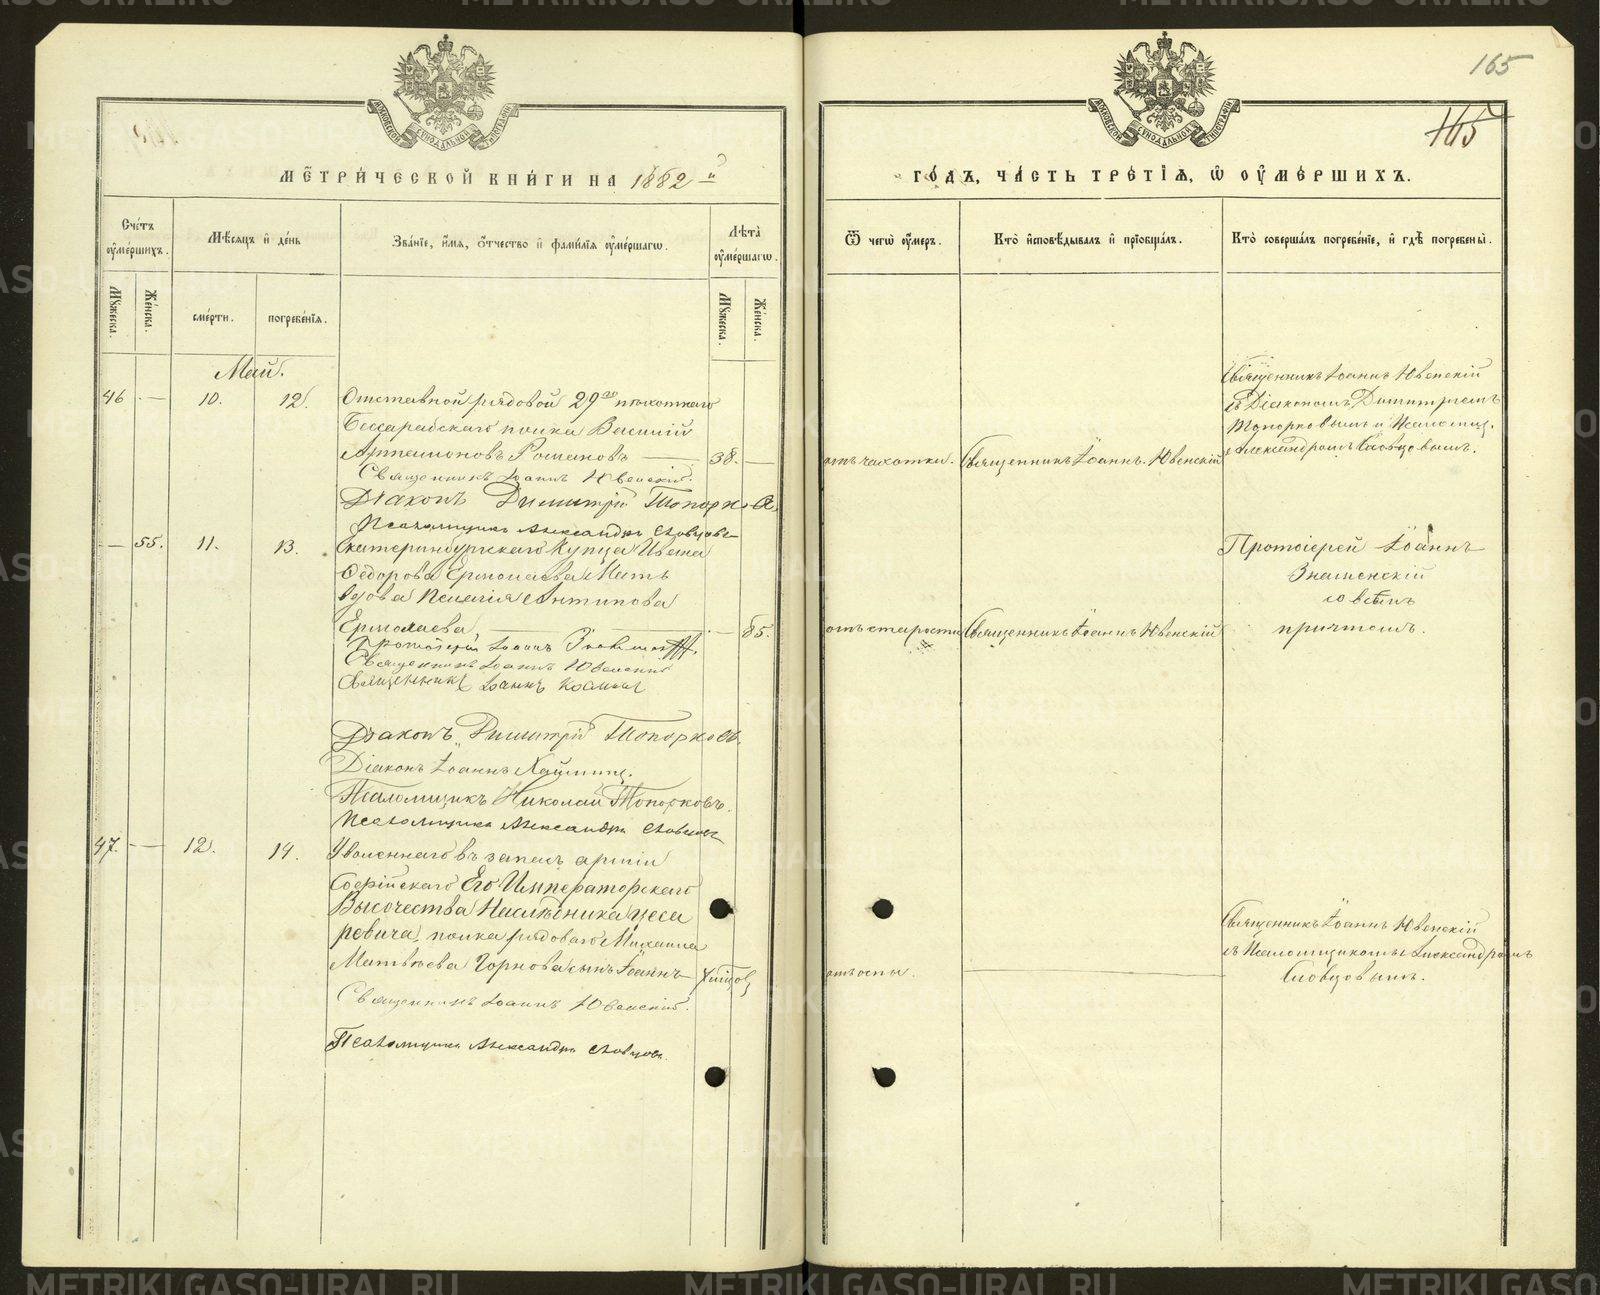 165
165
МЕТРИЧЕСКОЙ КНИГИ НА 1882 й
ГОДЪ, ЧАСТЬ ТРЕТІЯ, Ѿ ОУМЕРШИХЪ.
Счетъ оумершихъ.
Мѣсяцъ и день
Званіе, имя, отчество и фамилія оумершагѡ.
Лѣта оумершагѡ.
Ѿ чегѡ оумеръ.
Кто исповѣдывалъ и пріобщалъ.
Кто совершалъ погребеніе, и гдѣ погребены.
Мужеска.
Женска.
смерти.
погребенія.
Мужеска.
Женска.
Май.
46 — 10. 12.
Отставной рядовой 29го пѣхотнаго
Бессарабскаго полка Василій
Артамоновъ Романовъ — 38. —
отъ чахотки.
Священникъ Іоаннъ Ювенскій
Священникъ Іоаннъ Ювенскій
съ Діакономъ Димитріемъ
Топорковымъ и Псаломщ.
Александромъ Словцовымъ.
Священникъ Іоаннъ Ювенскій.
Діаконъ Димитрій Топорковъ
Псаломщикъ Александръ Словцовъ
— 55. 11. 13.
Екатеринбургскаго Купца Ивана
Ѳедорова Ермолаева Мать
вдова Пелагія Антипова
Ермолаева, — 85.
отъ старости
Священникъ Іоаннъ Ювенскій
Протоіерей Іоаннъ
Знаменскій
со всѣмъ
причтомъ.
Протоіерей Іоаннъ Знаменскій.
Священникъ Іоаннъ Ювенскій
Священникъ Іоаннъ
Діаконъ Димитрій Топорковъ
Діаконъ Іоаннъ
Псаломщикъ Николай Топорковъ.
Псаломщикъ Александръ Словцовъ
47. — 12. 14.
Уволеннаго въ запасъ арміи
Софійскаго Его Императорскаго
Высочества Наслѣдника Цеса
ревича, полка рядоваго Михаила
Матвѣева Горнова сынъ Іоаннъ
отъ оспы.
Священникъ Іоаннъ Ювенскій
съ Псаломщикомъ Александромъ
Словцовымъ.
Священникъ Іоаннъ Ювенскій.
Псаломщикъ Александръ Словцовъ.
METRIKI.GASO-URAL.RU